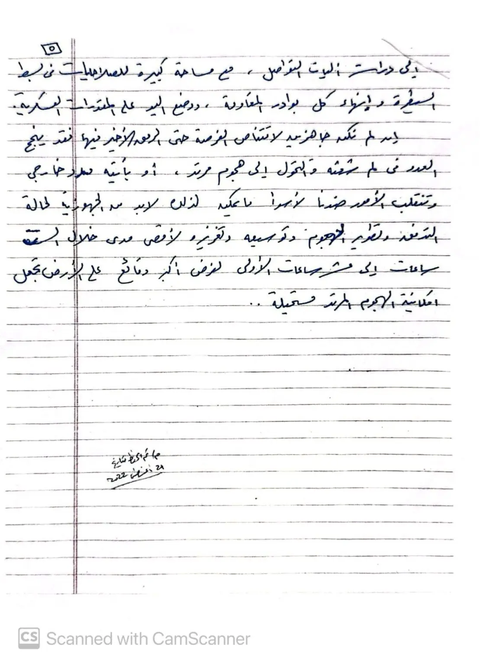 ٥
إلى دراسة آليات التواصل، مع مساحة كبيرة للصلاحيات في بسط
السيطرة وإنهاء كل بوادر المقاومة، ووضع اليد على المقدرات العسكرية.
إن لم نكن جاهزين لاقتناص الفرصة حتى الرمق الأخير فيها فقد ينجح
العدو في لم شعثه والتحول إلى هجوم مرتد، أو يأتيه مدد خارجي
وتنقلب الأمور ضدنا لأسوأ ما يمكن لذلك لابد من الجهوزية لحالة
التدفق وتطوير الهجوم وتوسيعه وتعزيزه لأقصى مدى خلال الست
ساعات إلى عشر ساعات الأولى لفرض أكبر وقائع على الأرض تجعل
امكانية الهجوم المرتد مستحيلة..
24 أغسطس 2022
CS Scanned with CamScanner